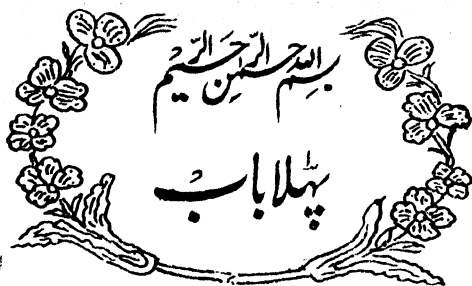 بسم اللہ الرحمن الرحیم
پہلا باب